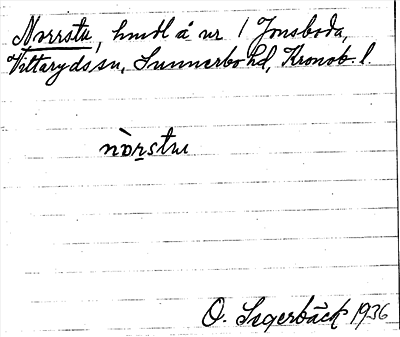 Norrstu, hmdl å nr 1 Jonsboda,
Vittaryds sn, Sunnerbo hd, Kronob. l.
nòrstu
O. Segerbäck 1936